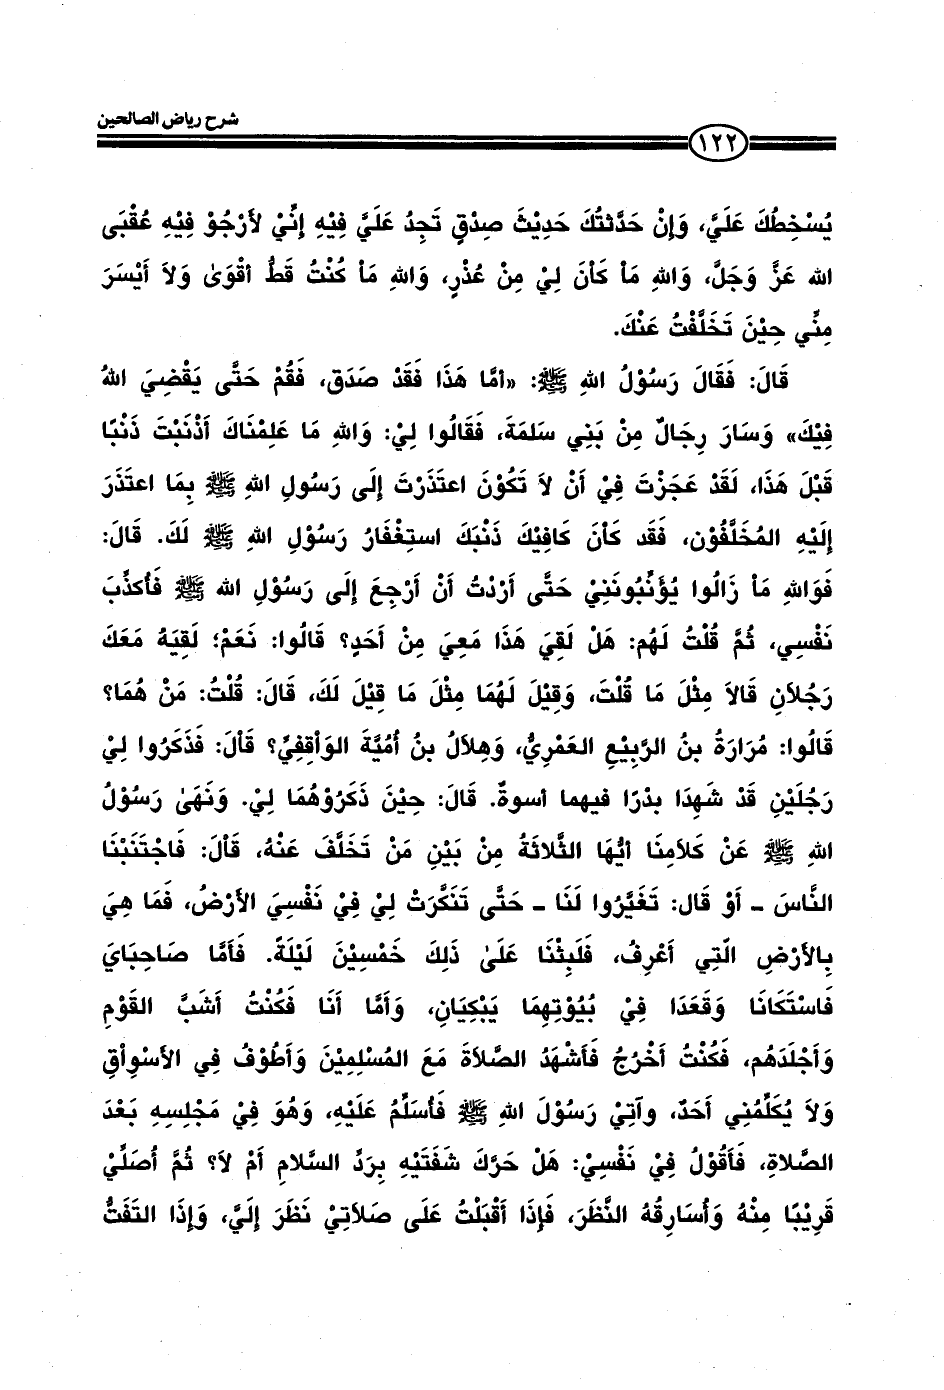 شرح رياض الصالحين
١٢٢
يُسْخِطُكَ عَلَيَّ، وَإِنْ حَدَّثتُكَ حَدِيْثَ صِدْقٍ تَجِدُ عَلَيَّ فِيْهِ إِنِّيْ لأَرْجُوْ فِيْهِ عُقْبَى
الله عَزَّ وَجَلَّ، وَاللهِ مَاْ كَاْنَ لِيْ مِنْ عُذْرٍ، وَاللهِ مَاْ كُنْتُ قَطُّ أَقْوَىٰ وَلاَ أَيْسَرَ
مِنِّي حِيْنَ تَخَلَّفْتُ عَنْكَ.
قَالَ: فَقَالَ رَسُوْلُ اللهِ ﷺ: «أمَّا هَذَا فَقَدْ صَدَقَ، فَقُمْ حَتَّى يَقْضِيَ اللهُ
فِيْكَ» وَسَارَ رِجَالٌ مِنْ بَنِي سَلمَةَ، فَقَالُوا لِيْ: وَاللهِ مَا عَلِمْنَاكَ أَذْنَبْتَ ذَنْبًا
قَبْلَ هَذَا، لَقَدْ عَجَزْتَ فِيْ أَنْ لاَ تَكُوْنَ اعتَذَرْتَ إِلَى رَسُولِ اللهِ ﷺ بِمَا اعتَذَرَ
إِلَيْهِ المُخَلَّفُوْن، فَقَد كَاْنَ كَافِيْكَ ذَنْبَكَ استِغْفَارُ رَسُوْلِ اللهِ ﷺ لَكَ. قَالَ:
فَوَاللهِ مَاْ زَالُوا يُؤَنِّبُونَنِيْ حَتَّى أَرْدْتُ أَنْ أَرْجِعَ إِلَى رَسُوْلِ الله ﷺ فَأكذِّبَ
نَفْسِي، ثُمَّ قُلْتُ لَهُم: هَلْ لَقِيَ هَذَا مَعِيَ مِنْ أَحَدٍ؟ قَالُوا: نَعَمْ؛ لَقِيَهُ مَعَكَ
رَجُلاَنِ قَالاَ مِثْلَ مَا قُلْتَ، وَقِيْلَ لَهُمَا مِثْلَ مَا قِيْلَ لَكَ، قَالَ: قُلْتُ: مَنْ هُمَا؟
قَالُوا: مُرَارَةُ بنُ الرَّبِيْعِ العَمْرِيُّ، وَهِلاَلُ بنُ أُمُيَّةَ الوَاْقِفِيِّ؟ قَاْلَ: فَذَكَرُوا لِيْ
رَجُلَيْنِ قَدْ شَهِدَا بَدْرًا فيهما أسوةٌ. قَالَ: حِيْنَ ذَكَرُوْهُمَا لِيْ. وَنَهَىٰ رَسُوْلُ
اللهِ ﷺ عَنْ كَلاَمِنَا أيُّهَا الثَّلاَثَةُ مِنْ بَيْنِ مَنْ تَخَلَّفَ عَنْهُ، قَاْلَ: فَاجْتَنَبْنَا
النَّاسَ - أَوْ قَال: تَغَيَّرُوا لَنَا - حَتَّى تَنَكَّرَتْ لِيْ فِيْ نَفْسِيَ الأَرْضُ، فَمَا هِيَ
بِالأَرْضِ الَّتِي أَعْرِفُ، فَلَبِثْنَا عَلَىٰ ذَلِكَ خَمْسِيْنَ لَيْلَةً. فَأَمَّا صَاحِبَايَ
فَاسْتَكَانَا وَقَعَدَا فِيْ بُيُوْتِهِمَا يَبْكِيَانِ، وَأَمَّا أَنَا فَكُنْتُ أشَبَّ القَوْمِ
وَأَجْلَدَهُم، فَكُنْتُ أَخْرُجُ فَأَشْهَدُ الصَّلاَةَ مَعَ المُسْلِمِيْنَ وَأَطُوْفُ فِي الأَسْوِاْقِ
وَلاَ يُكَلِّمُنِي أَحَدٌ، وآتِيْ رَسُوْلَ اللهِ ﷺ فَأُسَلِّمُ عَلَيْهِ، وَهُوَ فِيْ مَجْلِسِهِ بَعْدَ
الصَّلاَةِ، فَأَقُوْلُ فِيْ نَفْسِيْ: هَلْ حَرَّكَ شَفَتَيْهِ بِرَدِّ السَّلاَمِ أَمْ لاَ؟ ثُمَّ أُصَلِّيْ
قَرِيْبًا مِنْهُ وَأُسَارِقُهُ النَّظَرَ، فَإِذَا أَقْبَلْتُ عَلَى صَلاَتِيْ نَظَرَ إِلَيَّ، وَإِذَا التَفَتُّ